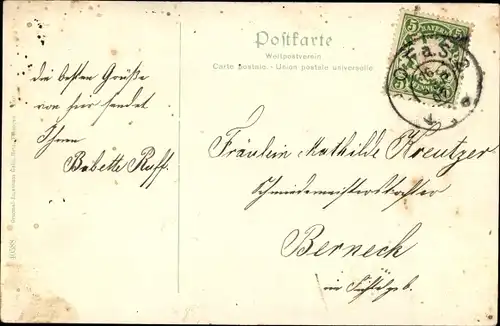 Postkarte
Weltpostverein
Carte postale - Union postale universelle
5 BAYERN 5
HOF a.S.
die besten Grüße
von hier sendet
Ihnen
Babette Ruff.
Fräulein Mathilde Kreutzer
Schmiedemeisterstochter
Berneck
im Fichtelgeb.